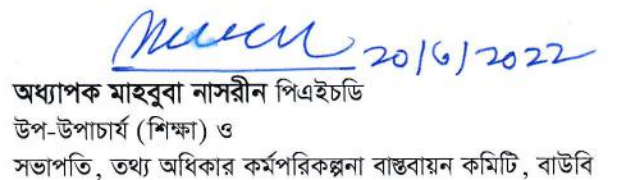 20/6/2022
অধ্যাপক মাহবুবা নাসরীন পিএইচডি
উপ-উপাচার্য (শিক্ষা) ও
সভাপতি, তথ্য অধিকার কর্মপরিকল্পনা বাস্তবায়ন কমিটি, বাউবি